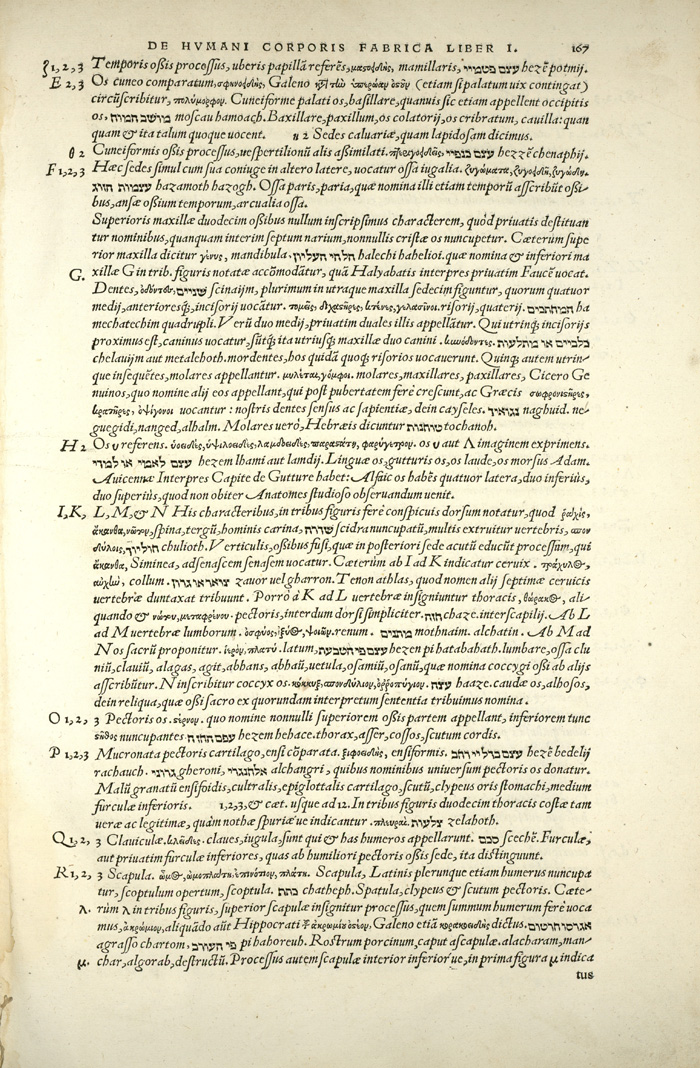 DE HVMANI CORPORIS FABRICA LIBER I. 167
ζ 1, 2, 3 Temporis oßis processus, uberis papillā referēs, μαστοειδὴς, mamillaris, עצם hezē potmij.
E 2, 3 Os cuneo comparatum, σφηνοειδὴς, Galeno (etiam si palatum uix contingat)
circūscribitur, πολύμορφον. Cuneiforme palati os, basillare, quanuis sic etiam appellent occipitis
os, מושב המוח moscau hamoach. Baxillare, paxillum, os colatorij, os cribratum, cauilla: quan
quam & ita talum quoque uocent. κ 2 Sedes caluariæ, quam lapidosam dicimus.
θ 2 Cuneiformis oßis processus, uespertilionū alis aßimilati. πτερυγοειδεῖς, עצם כנפיי hezzē chenaphij.
F 1, 2, 3 Hæc sedes simul cum sua coniuge in altero latere, uocatur ossa iugalia. ζυγώματα,
עצמות הזוג hazamoth hazogh. Ossa paris, paria, quæ nomina illi etiam temporū ascribūt oßi-
bus, ansæ oßium temporum, arcualia ossa.
Superioris maxillæ duodecim oßibus nullum inscripsimus characterem, quòd priuatis destituan
tur nominibus, quanquam interim septum narium, nonnullis cristæ os nuncupetur. Cæterum supe
rior maxilla dicitur γένυς, mandibula. הלחי העליון halechi hahelioi. quæ nomina & inferiori ma
G. xillæ G in trib. figuris notatæ accōmodātur, quā Halyabatis interpres priuatim Faucē uocat.
Dentes, ὀδόντες, שניים scinaijm, plurimum in utraque maxilla sedecim figuntur, quorum quatuor
medij, anterioresq́;, incisorij uocātur. τομεῖς, διχαστῆρες, κτένες, γελασῖνοι. risorij, quaterij. המחתכים ha
mechatechim quadrupli. Verū duo medij, priuatim duales illis appellātur. Qui utrinq; incisorijs
proximus est, caninus uocatur, sūtq́; ita utriusq; maxillæ duo canini. κυνόδοντες. כלביים או מתלעות
chelauijm aut metalehoth. mordentes, hos quidā quoq; risorios uocauerunt. Quinq; autem utrin-
que insequētes, molares appellantur. μυλίται, γόμφιοι. molares, maxillares, paxillares, Cicero Ge
nuinos, quo nomine alij eos appellant, qui post pubertatem ferè crescunt, ac Græcis σωφρονιστῆρες,
κραντῆρες, ὀψίγονοι uocantur: nostris dentes sensus ac sapientiæ, dein cayseles. נגואיד naghuid. ne-
guegidi, nanged, alhalm. Molares uerò, Hebræis dicuntur טוחנות tochanoh.
H 2 Os υ referens. ὑοειδὲς, ὑψιλοειδὲς, λαμδοειδὲς, παραστάτη, φαρύγετρον. os υ aut Λ imaginem exprimens.
עצם לאמי או למדי hezem lhami aut lamdij. Linguæ os, gutturis os, os laude, os morsus Adam.
Auicennæ Interpres Capite de Gutture habet: Alfaic os habēs quatuor latera, duo inferiùs,
duo superiùs, quod non obiter Anatomes studioso obseruandum uenit.
I, K, L, M, & N His characteribus, in tribus figuris ferè conspicuis dorsum notatur, quod ῥάχις,
ἄκανθα, νῶτον, spina, tergū, hominis carina, שדרה scidra nuncupatū, multis extruitur uertebris, σπον
δύλοις, חוליוך chulioth. Verticulis, oßibus fusi, quæ in posteriori sede acutū educūt processum, qui
ἄκανθα, Siminea, adsenasem senasem uocatur. Cæterùm ab I ad K indicatur ceruix. τράχηλος,
αὐχὴν, collum. צואר או גרון zauor uel gharron. Tenon athlas, quod nomen alij septimæ ceruicis
uertebræ duntaxat tribuunt. Porrò à K ad L uertebræ insigniuntur thoracis, θώρακος, ali-
quando & νώτου, μεταφρένου. pectoris, interdum dorsi simpliciter. חזה chaze. interscapilij. Ab L
ad M uertebræ lumborum. ὀσφύος, ἰξύος, ψοιῶν. renum. מותנים mothnaim. alchatin. Ab M ad
N os sacrū proponitur. ἱερὸν, πλατύ. latum, עצם פי הטבעת hezen pi hatabahath. lumbare, ossa clu
niū, clauiū, alagas, agit, abhans, abhaū, uetula, osamiū, osanū, quæ nomina coccygi oßi ab alijs
asscribūtur. N inscribitur coccyx os. κόκκυξ, σπονδύλιον, ὀῤῥοπύγιον. עצה haaze. caudæ os, alhosos,
dein reliqua, quæ oßi sacro ex quorundam interpretum sententia tribuimus nomina.
O 1, 2, 3 Pectoris os. στέρνον. quo nomine nonnulli superiorem oßis partem appellant, inferiorem tunc
στῆθος nuncupantes. עצם החזה hezem hehace. thorax, asser, cossos, scutum cordis.
P 1, 2, 3 Mucronata pectoris cartilago, ensi cōparata. ξιφοειδὴς, ensiformis. hezē bedelij
rachauch. גרוני gheroni, אלהנגרי alchangri, quibus nominibus uniuersum pectoris os donatur.
Malū granatū ensifoidis, cultralis, epiglottalis cartilago, scutū, clypeus oris stomachi, medium
furculæ inferioris. 1, 2, 3, & cæt. usque ad 12. In tribus figuris duodecim thoracis costæ tam
ueræ ac legitimæ, quàm nothæ spuriæue indicantur. πλευραὶ. צלעות zelahoth.
Q 1, 2, 3 Clauiculæ. κλεῖδες. claues, iugula, sunt qui & has humeros appellarunt. scechē. Furculæ,
aut priuatim furculæ inferiores, quas ab humiliori pectoris oßis sede, ita distinguunt.
R 1, 2, 3 Scapula. ὦμος, ὠμοπλάτη, ἐπινώτιον, πλάτη. Scapula, Latinis plerunque etiam humerus nuncupa
tur, scoptulum opertum, scoptula. כתף chatheph. Spatula, clypeus & scutum pectoris. Cæte-
λ. rùm λ in tribus figuris, superior scapulæ insignitur processus, quem summum humerum ferè uoca
mus, ἀκρώμιον, aliquādo aūt Hippocrati Galeno etiā κορακοειδὴς dictus. אגרוסו חרטום
agrasso chartom, פי העורב pi hahoreuh. Rostrum porcinum, caput ascapulæ. alacharam, man-
μ. char, algorab, destructū. Processus autem scapulæ interior inferiorue, in prima figura μ indica
tus